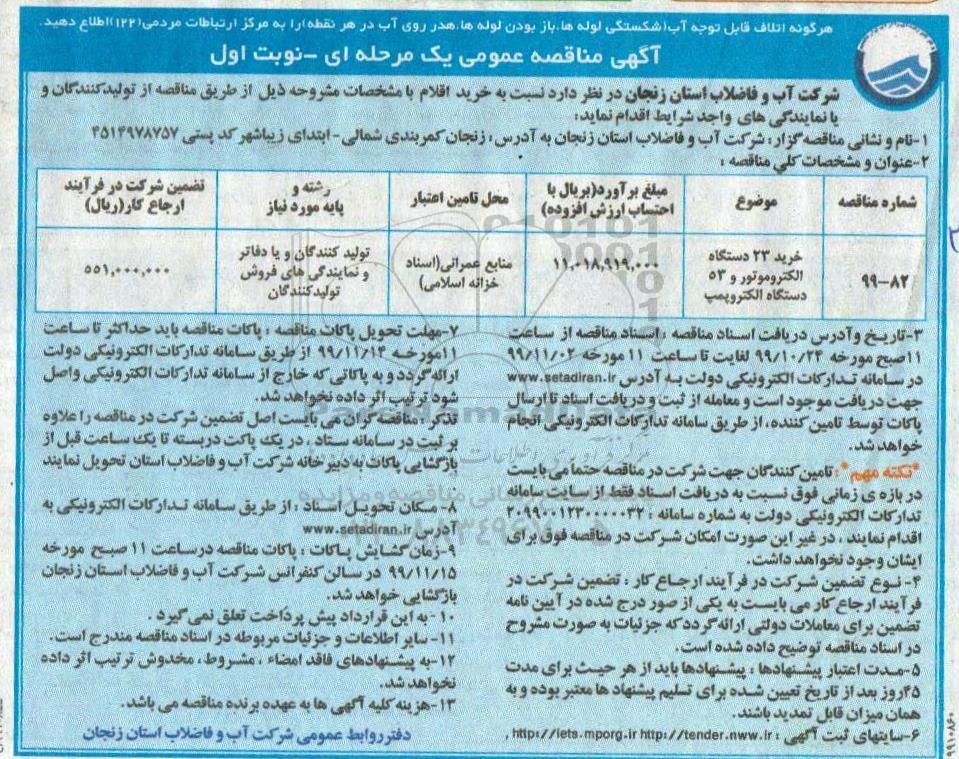 هرگونه اتلاف قابل توجه آب(شکستگی لوله ها،باز بودن لوله ها،هدر روی آب در هر نقطه)را به مرکز ارتباطات مردمی(۱۲۲)اطلاع دهید.
آگهی مناقصه عمومی یک مرحله ای -نوبت اول
شرکت آب و فاضلاب استان زنجان در نظر دارد نسبت به خرید اقلام با مشخصات مشروحه ذیل از طریق مناقصه از تولیدکنندگان و
یا نمایندگی های واجد شرایط اقدام نماید:
۱-نام و نشانی مناقصه گزار: شرکت آب و فاضلاب استان زنجان به آدرس: زنجان کمربندی شمالی- ابتدای زیباشهر کد پستی ۴۵۱۴۹۷۸۷۵۷
۲-عنوان و مشخصات کلی مناقصه :
شماره مناقصه
موضوع
مبلغ برآورد(بریال با
احتساب ارزش افزوده)
محل تامین اعتبار
رشته و
پایه مورد نیاز
تضمین شرکت در فرآیند
ارجاع کار(ریال)
۹۹-۸۲
خرید ۲۳ دستگاه
الکتروموتور و ۵۳
دستگاه الکتروپمپ
۱۱,۰۱۸,۹۱۹,۰۰۰
منابع عمرانی(اسناد
خزانه اسلامی)
تولید کنندگان و یا دفاتر
و نمایندگی های فروش
تولیدکنندگان
۵۵۱,۰۰۰,۰۰۰
۳-تاریخ وآدرس دریافت اسناد مناقصه :اسناد مناقصه از ساعت
۱۱صبح مورخه ۹۹/۱۰/۲۴ لغایت تا ساعت ۱۱ مورخه ۹۹/۱۱/۰۲
در سامانه تدارکات الکترونیکی دولت به آدرس www.setadiran.ir
جهت دریافت موجود است و معامله از ثبت و دریافت اسناد تا ارسال
پاکات توسط تامین کننده، از طریق سامانه تدارکات الکترونیکی انجام
خواهد شد.
*نکته مهم*: تامین کنندگان جهت شرکت در مناقصه حتما می بایست
در بازه ی زمانی فوق نسبت به دریافت اسناد فقط از سایت سامانه
تدارکات الکترونیکی دولت به شماره سامانه : ۲۰۹۹۰۰۱۲۳۰۰۰۰۰۳۲
اقدام نمایند ، در غیر این صورت امکان شرکت در مناقصه فوق برای
ایشان وجود نخواهد داشت.
۴- نوع تضمین شرکت در فرآیند ارجاع کار : تضمین شرکت در
فرآیند ارجاع کار می بایست به یکی از صور درج شده در آیین نامه
تضمین برای معاملات دولتی ارائه گردد که جزئیات به صورت مشروح
در اسناد مناقصه توضیح داده شده است.
۵-مدت اعتبار پیشنهادها : پیشنهادها باید از هر حیث برای مدت
۴۵روز بعد از تاریخ تعیین شده برای تسلیم پیشنهاد ها معتبر بوده و به
همان میزان قابل تمدید باشند.
۶-سایتهای ثبت آگهی : http://iets.mporg.ir http://tender.nww.ir ,
۷-مهلت تحویل پاکات مناقصه : پاکات مناقصه باید حداکثر تا ساعت
۱۱مورخه ۹۹/۱۱/۱۴ از طریق سامانه تدارکات الکترونیکی دولت
ارائه گردد و به پاکاتی که خارج از سامانه تدارکات الکترونیکی واصل
شود ترتیب اثر داده نخواهد شد.
تذکر : مناقصه گران می بایست اصل تضمین شرکت در مناقصه را علاوه
بر ثبت در سامانه ستاد ، در یک پاکت دربسته تا یک ساعت قبل از
بازگشایی پاکات به دبیرخانه شرکت آب و فاضلاب استان تحویل نمایند
۸- مکان تحویل اسناد : از طریق سامانه تدارکات الکترونیکی به
آدرس www.setadiran.ir
۹-زمان گشایش پاکات : پاکات مناقصه درساعت ۱۱ صبح مورخه
۹۹/۱۱/۱۵ در سالن کنفرانس شرکت آب و فاضلاب استان زنجان
بازگشایی خواهد شد.
۱۰- به این قرارداد پیش پرداخت تعلق نمی گیرد .
۱۱- سایر اطلاعات و جزئیات مربوطه در اسناد مناقصه مندرج است.
۱۲-به پیشنهادهای فاقد امضاء ، مشروط ، مخدوش ترتیب اثر داده
نخواهد شد.
۱۳-هزینه کلیه آگهی ها به عهده برنده مناقصه می باشد.
دفتر روابط عمومی شرکت آب و فاضلاب استان زنجان
۹۹۱۰۸۶۰